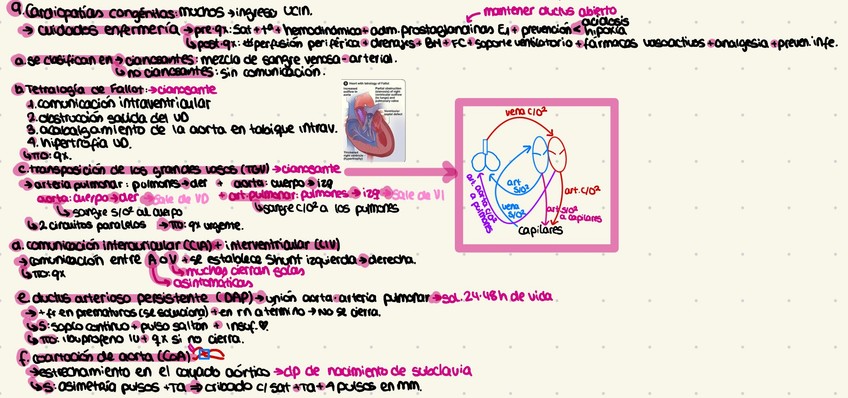 9. Cardiopatías congénitas: muchos → ingreso UCIN.
mantener ductus abierto
→ cuidados enfermería → pre-qx: Sat + tª + hemodinámica + adm. prostaglandinas E1 + prevención < acidosis hipoxia
→ post-qx: perfusión periférica + drenajes + BH + FC + soporte ventilatorio + fármacos vasoactivos + analgesia + preven. infe.
a. se clasifican en → cianosantes: mezcla de sangre venosa-arterial.
↳ no cianosantes: sin comunicación.
b. Tetralogía de Fallot: → cianosante
1. comunicación intraventricular
2. obstrucción salida del VD
3. acabalgamiento de la aorta en tabique intrav.
4. hipertrofia VD.
↳ TTO: qx.
c. transposición de los grandes vasos (TGV) → cianosante
→ arteria pulmonar: pulmones → der + aorta: cuerpo → izq
aorta: cuerpo → der → sale de VD + art. pulmonar: pulmones → izq → sale de VI
↳ sangre s/O² al cuerpo ↳ sangre c/O² a los pulmones
↳ 2 circuitos paralelos → TTO: qx urgente.
vena c/O²
art s/O²
vena s/O²
art. aorta c/O² a pulmones
art. c/O²
art s/O² a capilares
capilares
d. comunicación interauricular (CIA) + interventricular (CIV)
→ comunicación entre A o V + se establece shunt izquierda → derecha.
↳ TTO: qx
↳ muchas cierran solas
↳ asintomáticas
e. ductus arterioso persistente (DAP) → unión aorta-arteria pulmonar → sol. 24-48h de vida
→ + fr en prematuros (se soluciona) + en rn a término → no se cierra.
↳ S: soplo continuo + pulso saltón + insuf. ♥.
↳ TTO: ibuprofeno IV + qx si no cierra.
f. coartación de aorta (CoA)
→ estrechamiento en el cayado aórtico → dp de nacimiento de subclavia
↳ S: asimetría pulsos + TA ⇒ cribado c/ sat + TA + 4 pulsos en mm.